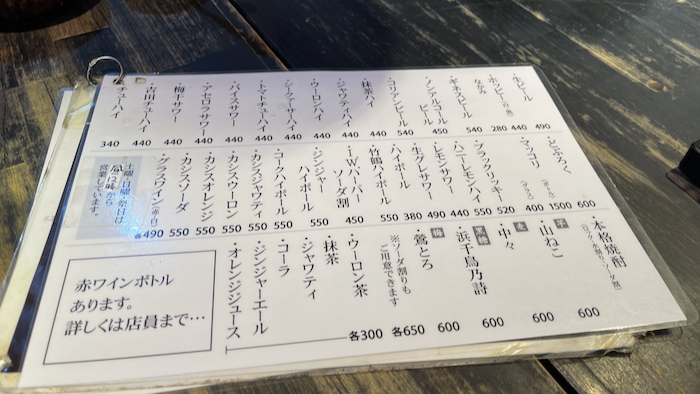 ・生ビール 490
・ホッピー(白・黒) 440
なかみ 280
・ギネスビール 540
・ノンアルコール
ビール 450
・コリアンビール 540
・抹茶ハイ 440
・ジャワティハイ 440
・ウーロンハイ 440
・シークァーサーハイ 440
・トマトチューハイ 440
・バイスサワー 440
・アセロラサワー 440
・梅干サワー 440
・古田チューハイ 440
・チューハイ 340
・どぶろく 600
・マッコリ
(ボトル) 1500
(グラス) 400
・ブラックニッキー 520
・ハニーレモンハイ 550
・レモンサワー 440
・生グレサワー 490
・ハイボール 380
・竹鶴ハイボール 550
・I.W.ハーパー
ソーダ割 450
・ジンジャー
ハイボール 550
・コークハイボール 550
・カシスジャワティ 550
・カシスウーロン 550
・カシスオレンジ 550
・カシスソーダ 550
・グラスワイン(赤・白) 各490
土曜、日曜、祭日は
営業しています。
・本格焼酎
(ロック・水割り・ソーダ割) 600
芋 ・山ねこ 600
麦 ・中々 600
黒糖 ・浜千鳥乃詩 600
梅 ・鶯とろ 600
※ソーダ割りも
ご用意できます 各650
・ウーロン茶
・抹茶
・ジャワティ
・コーラ
・ジンジャーエール
・オレンジジュース
各300
赤ワインボトル
あります。
詳しくは店員まで…